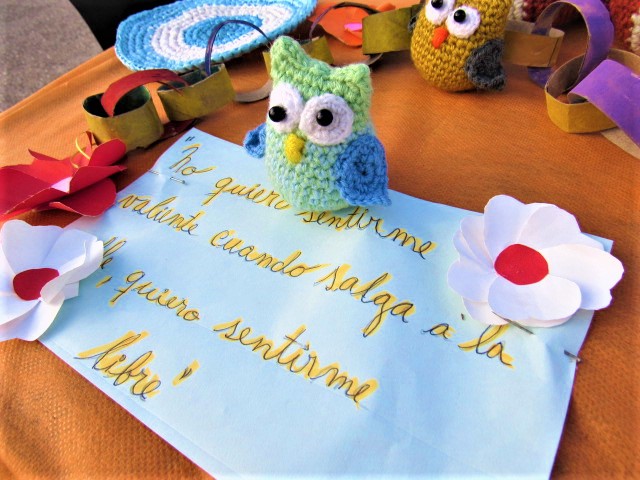 "No quiero sentirme
valiente cuando salga a la
lle, quiero sentirme
libre"